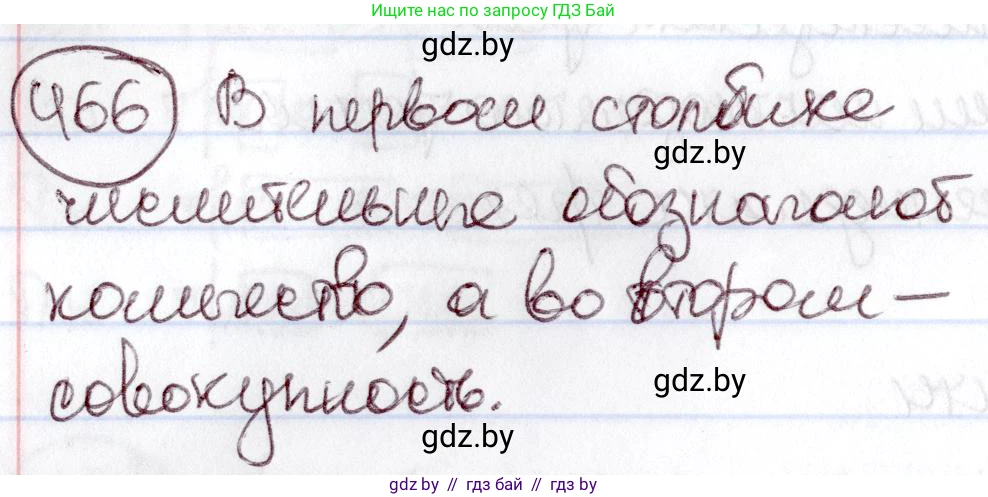 Ищите нас по запросу ГДЗ Бай
gdz.by
466 В первом столбике
gdz.by
числительные обозначают
количество, а во втором –
совокупность.
gdz.by
gdz.by
gdz.by // гдз бай // гдз by